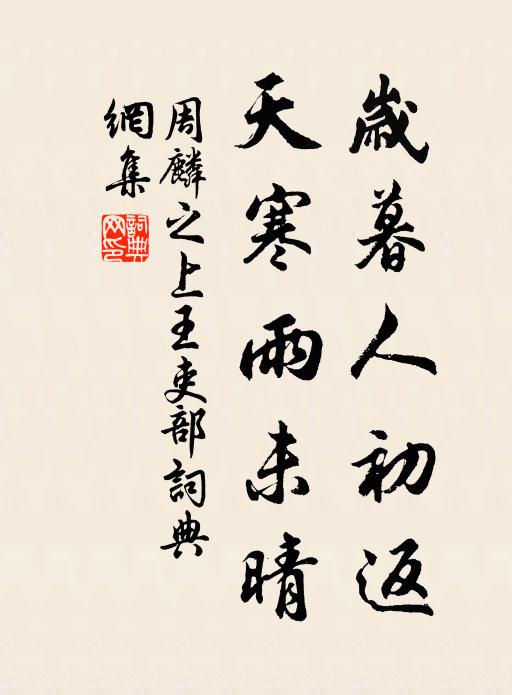 歲暮人初返
天寒雨未晴
周麟之上王吏部詞典
網集
詞典
网印